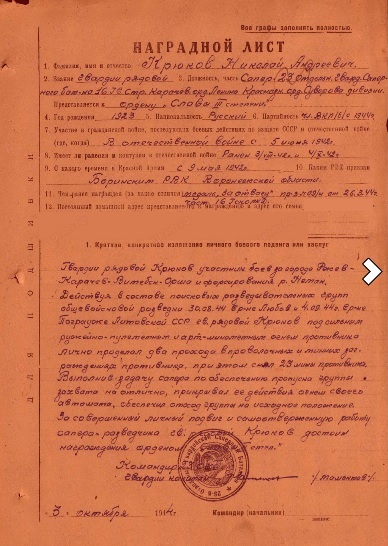 Все графы заполнять полностью.
НАГРАДНОЙ ЛИСТ
1. Фамилия, имя и отчество Крюков Николай Андреевич.
2. Звание Гвардии рядовой 3. Должность, часть Сапер 23 Отдельн. Гвард. Сапер-
ного бат-на 16 Стр. Карачев. орд. Ленина Краснозн. орд. Суворова дивизии.
Представляется к ордену „Слава III степени"
4. Год рождения 1923 5. Национальность Русский 6. Партийность чл. ВКП/б/ с 1944г.
7. Участие в гражданской войне, последующих боевых действиях по защите СССР и отечественной войне
(где, когда) В отечественной войне с 5 июня 1942г.
8. Имеет ли ранения и контузии в отечественной войне Ранен
9. С какого времени в Красной Армии с 9 мая 1942г. 10. Каким РВК призван
Боринским РВК Воронежской области.
11. Чем ранее награжден (за какие отличия) медаль „За отвагу" от 26.3.44г.
12. Постоянный домашний адрес представляемого к награждению и адрес его семьи
ДЛЯ ПОДШИВКИ
I. Краткое, конкретное изложение личного боевого подвига или заслуг
Гвардии рядовой Крюков участник боев за города
Карачев-Витебск-Орша и форсирования р. Неман.
Действуя в составе поисковых разведывательных групп
общевойсковой разведки 30.08.44 4.09.44г. в р-не
Литовской ССР гв. рядовой Крюков под сильным
ружейно-пулеметным и арт-минометным огнем противника
лично проделал два прохода в проволочных и минных заг-
раждениях противника, при этом снял 23 мин противника.
Выполнив задачу сапера по обеспечению пропуска группы
захвата на отлично, прикрывал ее действия огнем своего
автомата, обеспечив отход группы на исходное положение.
За совершенный личный подвиг и самоотверженную работу
сапера-разведчика гв. Крюков достоин
награждения орденом
Командир
Гвардии
3. октября 1944г. Командир (начальник)